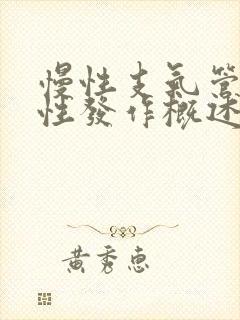 慢性支氣管
性發作概述
黃秀惠